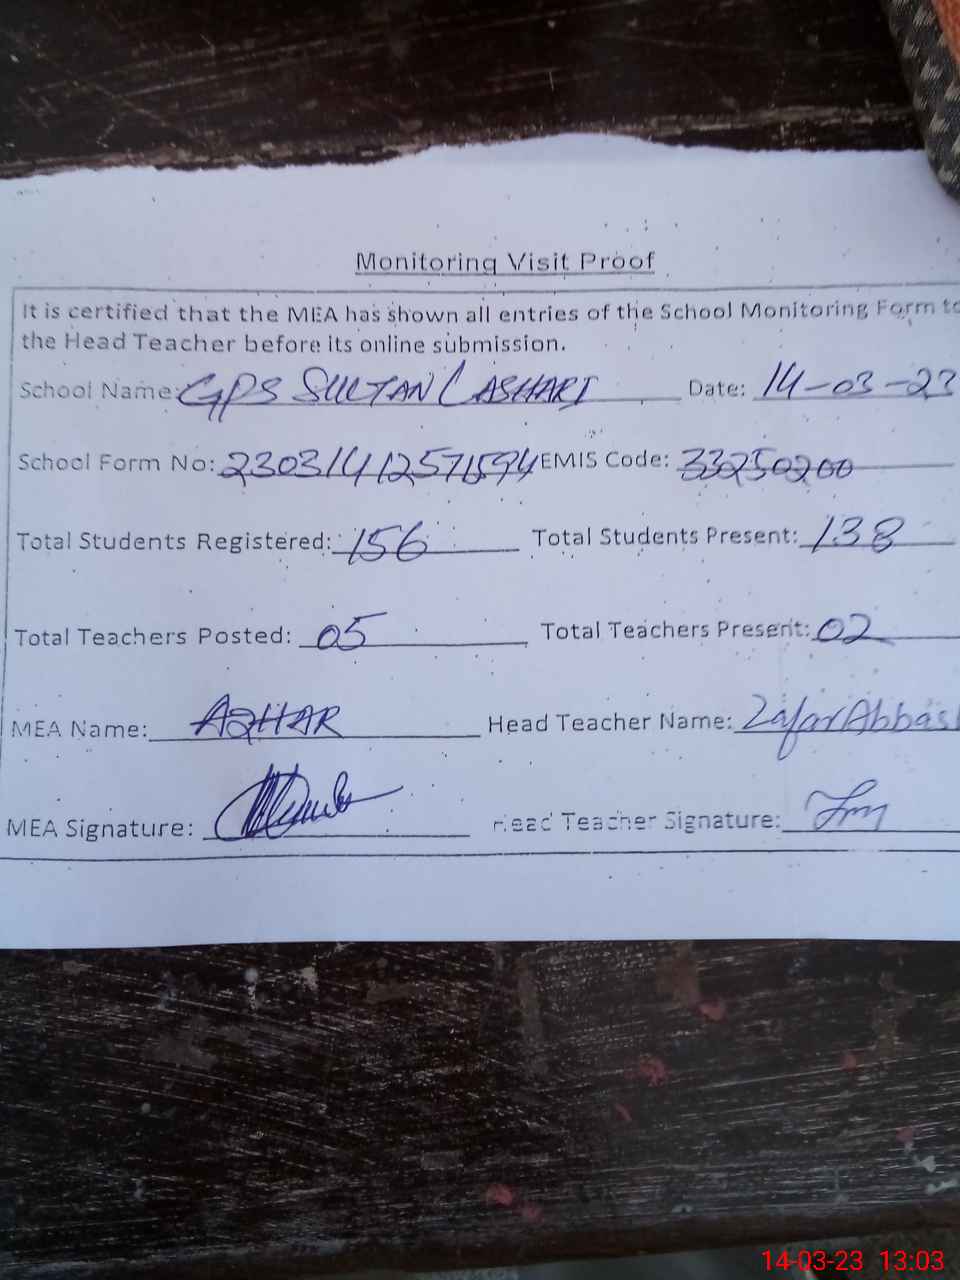 Monitoring Visit Proof
It is certified that the MEA has shown all entries of the School Monitoring Form to
the Head Teacher before its online submission.
School Name: GPS SULTAN LASHARI Date: 14-03-23
School Form No: 23031412571594 EMIS Code: 33250200
Total Students Registered: 156 Total Students Present: 138
Total Teachers Posted: 05 Total Teachers Present: 02
MEA Name: AZHAR Head Teacher Name: Zafar Abbas
MEA Signature: Head Teacher Signature:
14-03-23 13:03